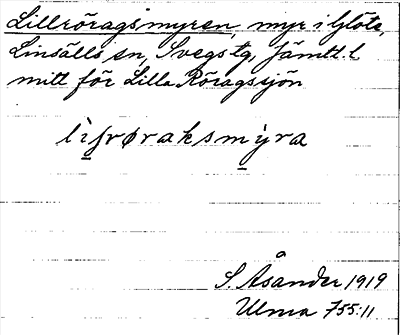 Lillrörags myren, myr i Glöte,
Linsälls sn, Svegs tg, Jämtl. l
mitt för Lilla Röragssjön
S. Åsander 1919
Ulma 755:11